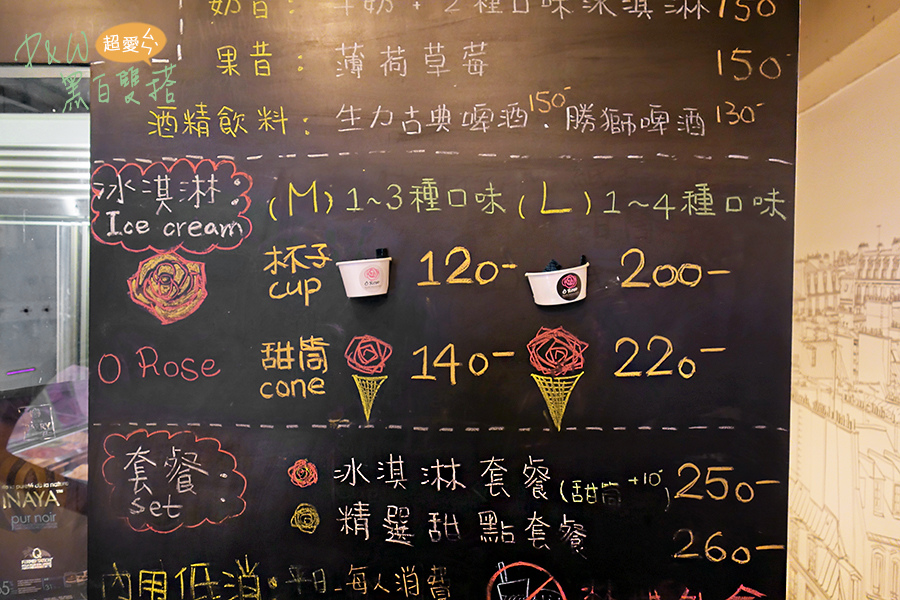 奶昔： 牛奶 + 2種口味冰淇淋 150
P&W 超愛ㄙㄙ
黑白雙搭
果昔： 薄荷草莓 150-
酒精飲料： 生力古典啤酒 150- . 勝獅啤酒 130-
冰淇淋： (M) 1~3種口味 (L) 1~4種口味
Ice cream
杯子 cup 120- 200-
O Rose
甜筒 cone 140- 220-
套餐： set
冰淇淋套餐 (甜筒+10-) 250-
精選甜點套餐 260-
INAYA™
pur noir
內用低消： 平日_每人消費